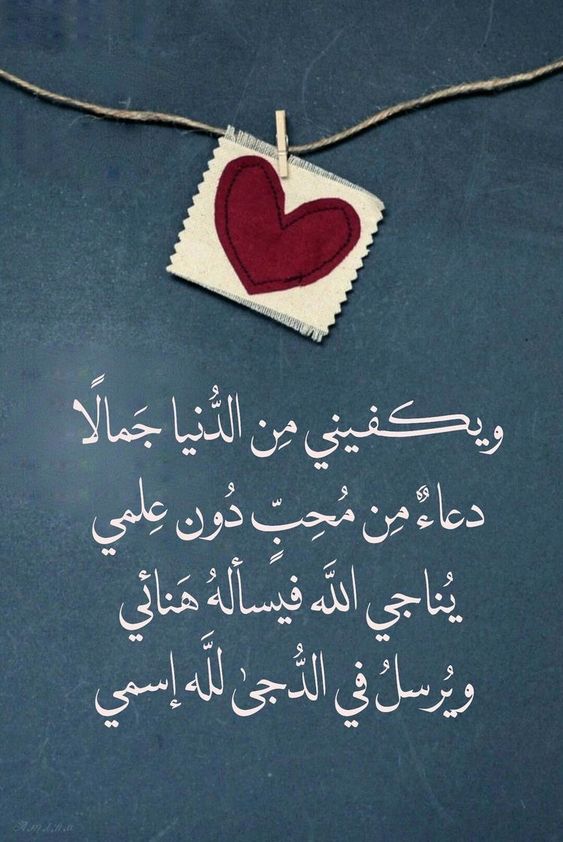 ويكفيني مِن الدُّنيا جَمالًا
دعاءٌ مِن مُحِبٍّ دُون عِلمي
يُناجي اللَّه فيسألهُ هَنائي
ويُرسلُ في الدُّجىٰ للَّه إسمي